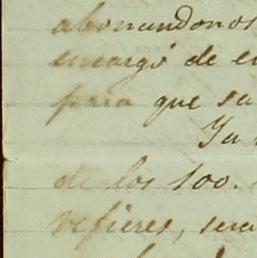 abonandonos
encargó de e
para que su
Ya
de los 100.
refieres, sera